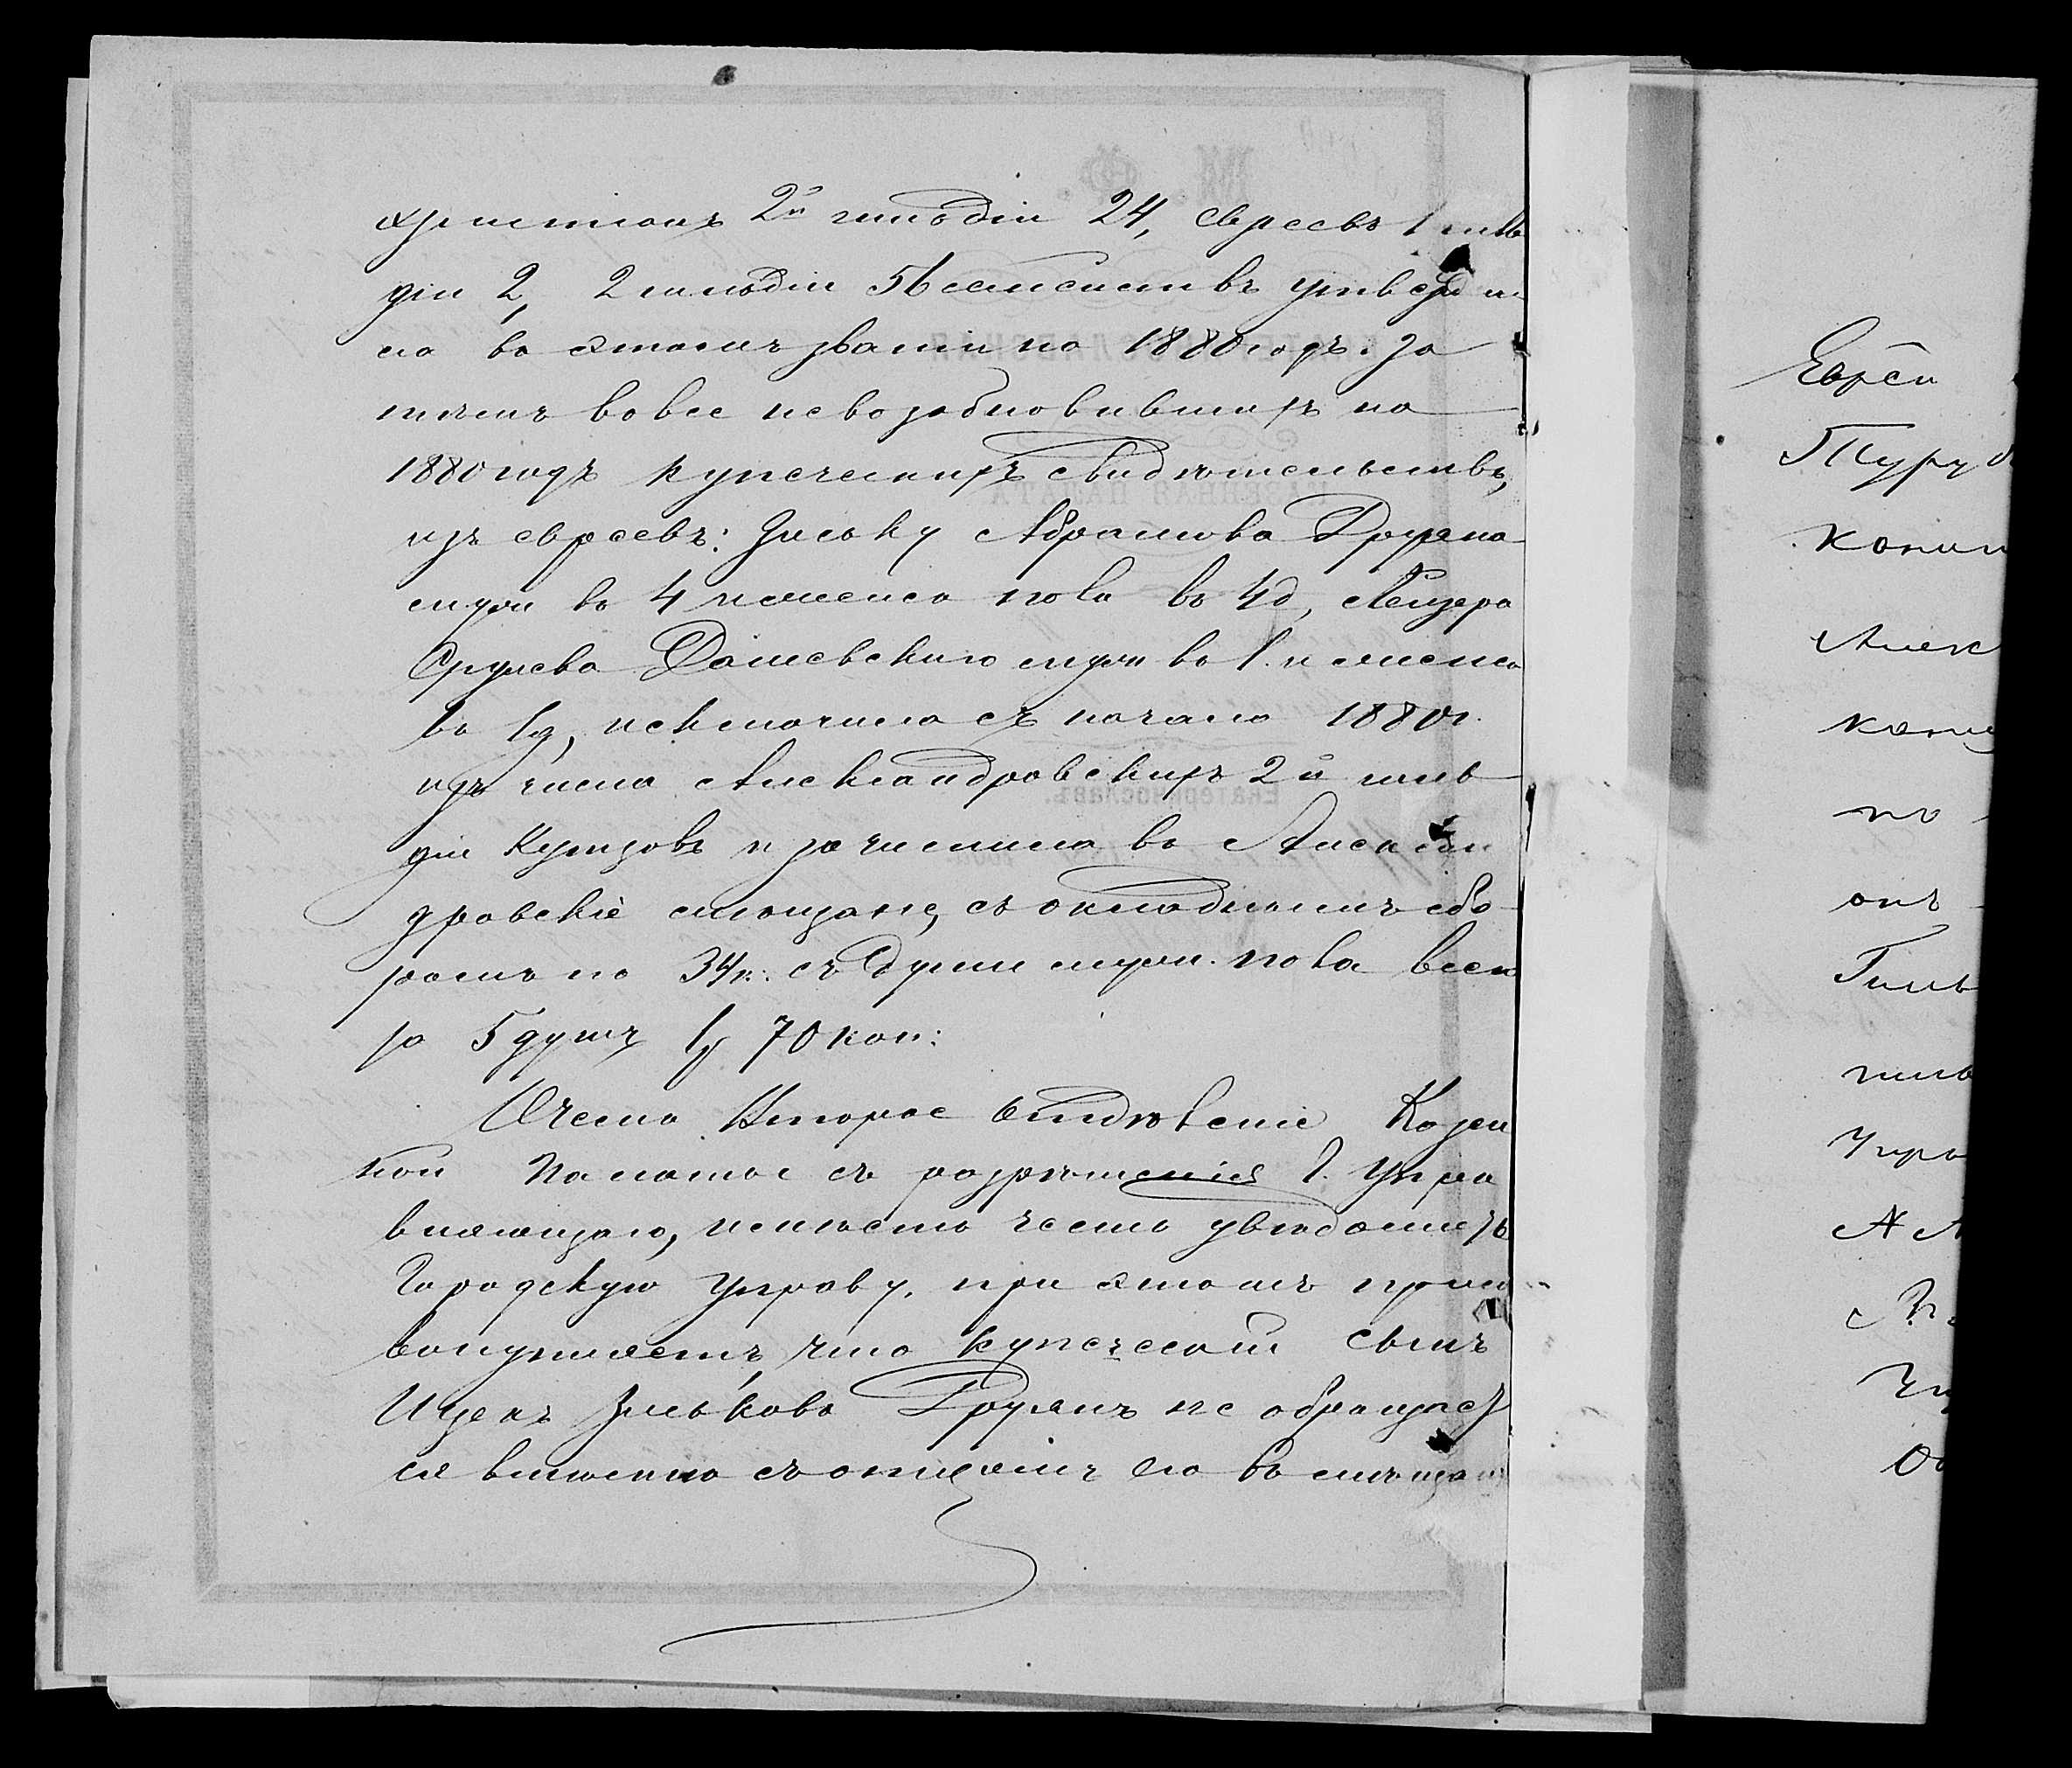 христіанъ 2й гильдіи 24, евреевъ 1 гиль
діи 2, 2 гильдіи 51 семействъ утверди
ла въ этомъ званіи на 1880 годъ. За
тѣмъ вовсе невозобновившихъ на
1880 годъ купеческихъ свидѣтельствъ,
изъ евреевъ: Зиську Абрамова Друяна
муж въ 4 и женска пола въ 4 д, Лейзера
Срулева Дашевскаго муж въ 1. и женска
въ 1 д, исключила съ начала 1880 г.
изъ числа Александровскихъ 2й гиль
діи купцовъ и зачислила въ Алексан
дровскіе мѣщане, съ окладнымъ сбо
ромъ по 34 к. съ души муж. пола всего
за 5 душъ 1 р 70 коп:
О чемъ Второе Отдѣленіе Казен
ной Палаты съ разрѣшенія Г. Упра
вляющаго, имѣетъ честь увѣдомить
Городскую Управу, при этомъ присо
вокупляетъ, что купеческій сынъ
Ицекъ Зиськовъ Друянъ не обращает
ся вмѣстѣ съ отцемъ его въ мѣщан
Еврей
Туру
Копи
Алек
копу
по
онъ
Гиль
гиль
Упра